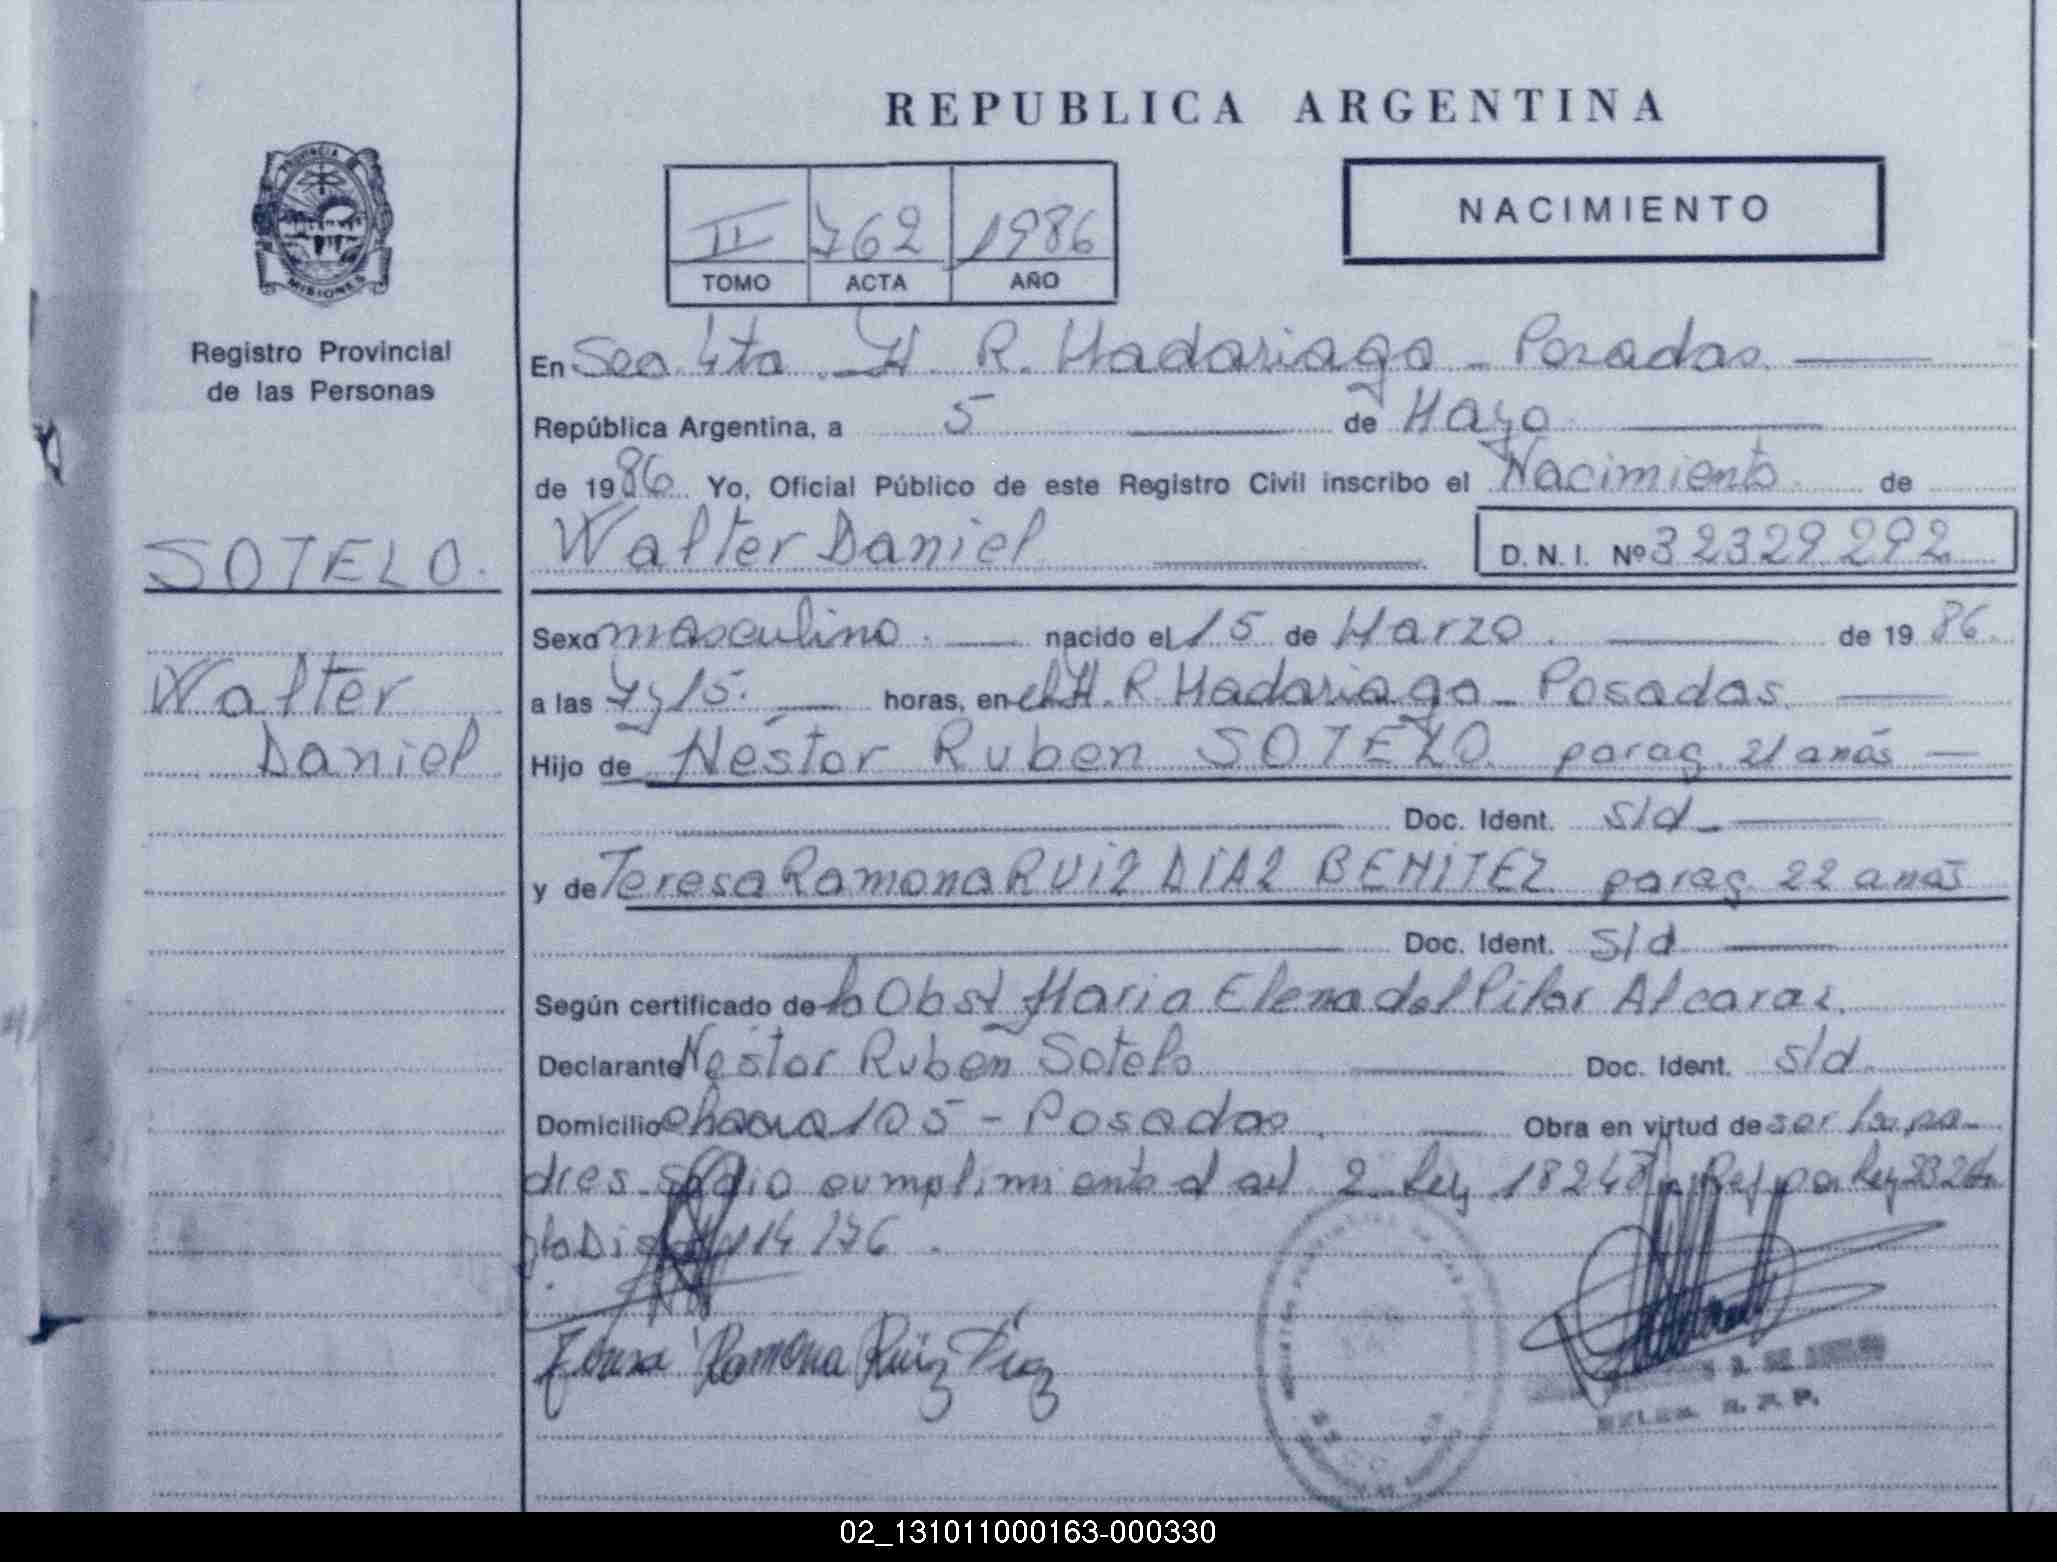 REPUBLICA ARGENTINA
PROVINCIA
MISIONES
Registro Provincial
de las Personas
II 762 1986
TOMO ACTA AÑO
NACIMIENTO
En Sec 4ta H R. Madariaga - Posadas
República Argentina, a 5 de Mayo
de 1986 Yo, Oficial Público de este Registro Civil inscribo el Nacimiento de
SOTELO.
Walter Daniel D. N. I. Nº 32329292
Walter
Daniel
Sexo masculino. nacido el 15 de Marzo. de 1986.
a las 7 y 15. horas, en el H. R. Madariaga - Posadas.
Hijo de Néstor Ruben SOTELO parag. 21 años
Doc. Ident. s/d
y de Teresa Ramona RUIZ DIAZ BENITEZ parag. 22 años
Doc. Ident. s/d
Según certificado de la Obst Maria Elena del Pilar Alcaraz.
Declarante Nestor Ruben Sotelo Doc. Ident. s/d
Domicilio chacra 105 - Posadas Obra en virtud de ser los pa-
dres se dio cumplimiento al art 2 Ley 18248
14 176.
Teresa Ramona Ruiz Diaz
R. P. P.
02_131011000163-000330